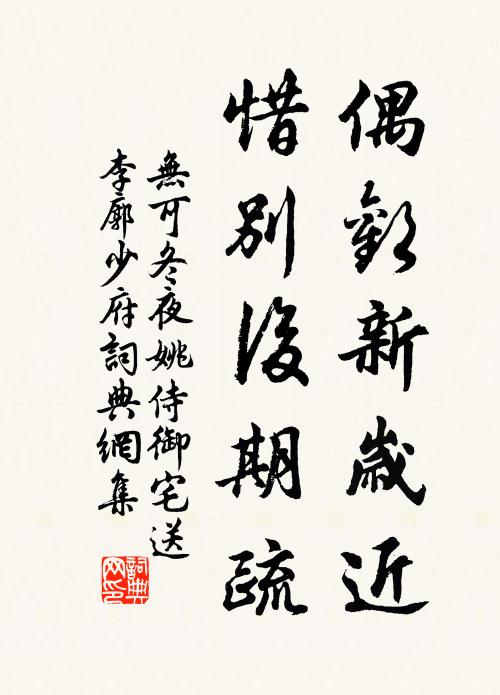 偶歡新歲近
惜別後期疏
無可冬夜姚侍御宅送
李廓少府詞典網集
詞典网印